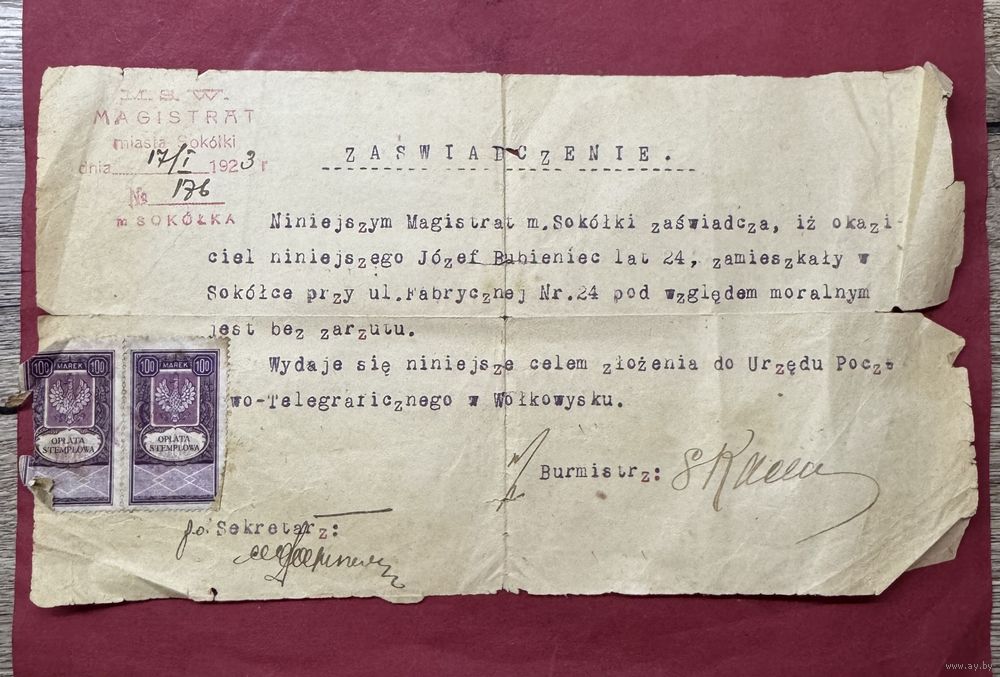 M.S.W.
MAGISTRAT
miasta Sokółki
dnia 17/I 1923 r
№ 176
m SOKÓŁKA
ZAŚWIADCZENIE.
Niniejszym Magistrat m.Sokółki zaświadcza, iż okazi
ciel niniejszego Józef Bubieniec lat 24, zamieszkały w
Sokółce przy ul.Fabrycznej Nr.24 pod względem moralnym
jest bez zarzutu.
Wydaje się niniejsze celem złożenia do Urzędu Poczt
wo-Telegraficznego w Wołkowysku.
100 MAREK 100
OPŁATA
STEMPLOWA
100 MAREK 100
OPŁATA
STEMPLOWA
Burmistrz:
p.o. Sekretarz:
www.ay.by